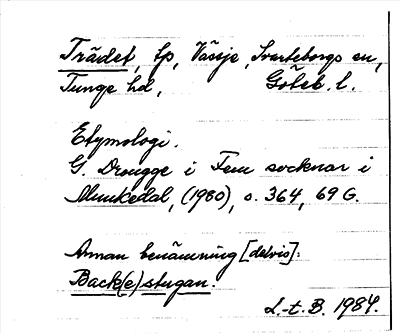 Trädet, tp, Vässje, Svarteborgs sn,
Tunge hd, Göteb. l.
Etymologi.
G. Drougge i Fem socknar i
Munkedal, (1980), s. 364, 69 G.
Annan benämning [delvis]:
Back(e)stugan.
L.-t. B. 1984.